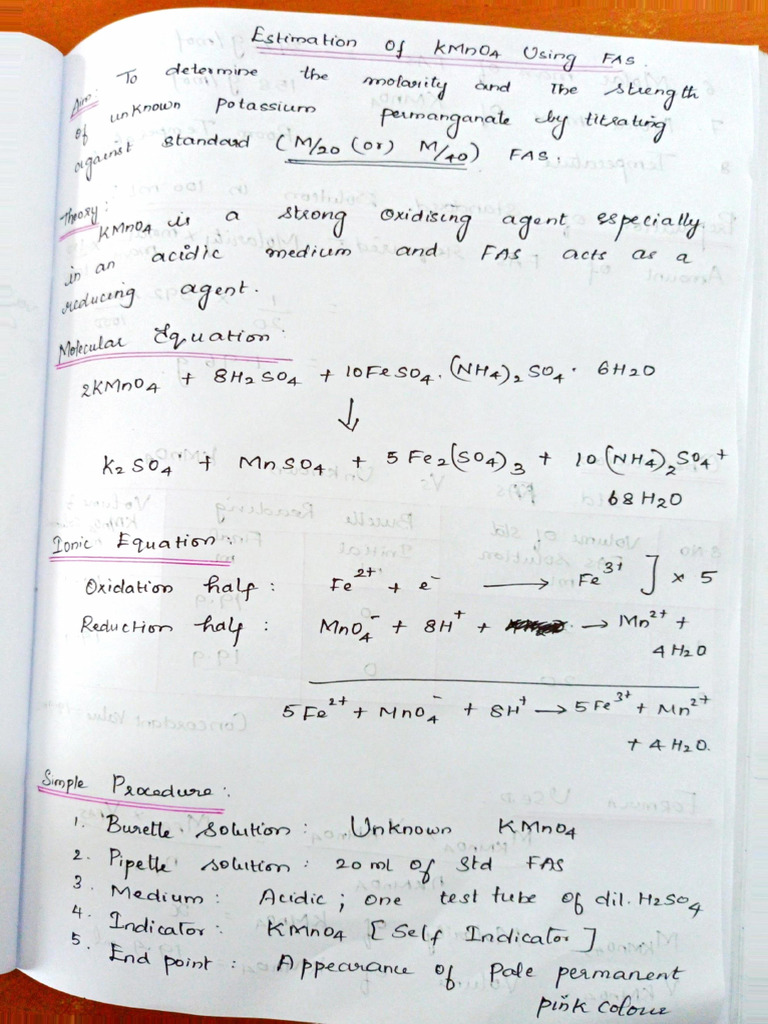 Estimation Of KMnO4 Using FAS.
Aim: To determine the molarity and the strength
of unknown Potassium permanganate by titrating
against standard (M/20 (or) M/40) FAS.
Theory:
KMnO4 is a strong oxidising agent especially
in an acidic medium and FAS acts as a
reducing agent.
Molecular Equation:
2KMnO4 + 8H2SO4 + 10FeSO4.(NH4)2SO4. 6H2O
↓
K2SO4 + MnSO4 + 5Fe2(SO4)3 + 10(NH4)2SO4+
68H2O
Ionic Equation:
Oxidation half: Fe2+ + e- → Fe3+ ] x 5
Reduction half: MnO4- + 8H+ + → Mn2+ +
4H2O
5Fe2+ + MnO4- + 8H+ → 5Fe3+ + Mn2+
+ 4H2O.
Simple Procedure:
1. Burette solution: Unknown KMnO4
2. Pipette solution: 20ml of Std FAS
3. Medium: Acidic; one test tube of dil. H2SO4
4. Indicator: KMnO4 [Self Indicator]
5. End point: Appearance of Pale permanent
pink colour